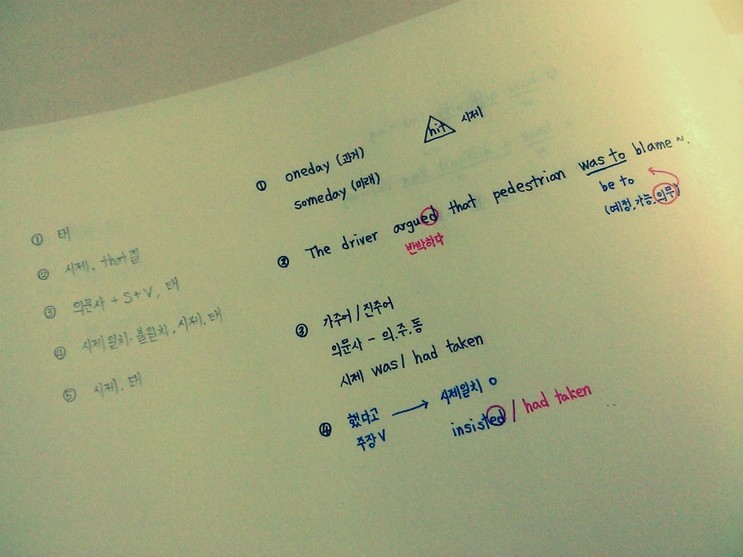 ① 태
② 시제. that절
③ 의문사 + S+V, 태
④ 시제일치·불일치, 시제, 태
⑤ 시제. 태
hit 시제
① oneday (과거)
someday (미래)
② The driver argued that pedestrian was to blame ~.
반박하다
be to
(예정.가능.의무)
③ 가주어 / 진주어
의문사 - 의.주.동
시제 was / had taken
④ 했다고 → 시제일치 o
주장 V insisted / had taken